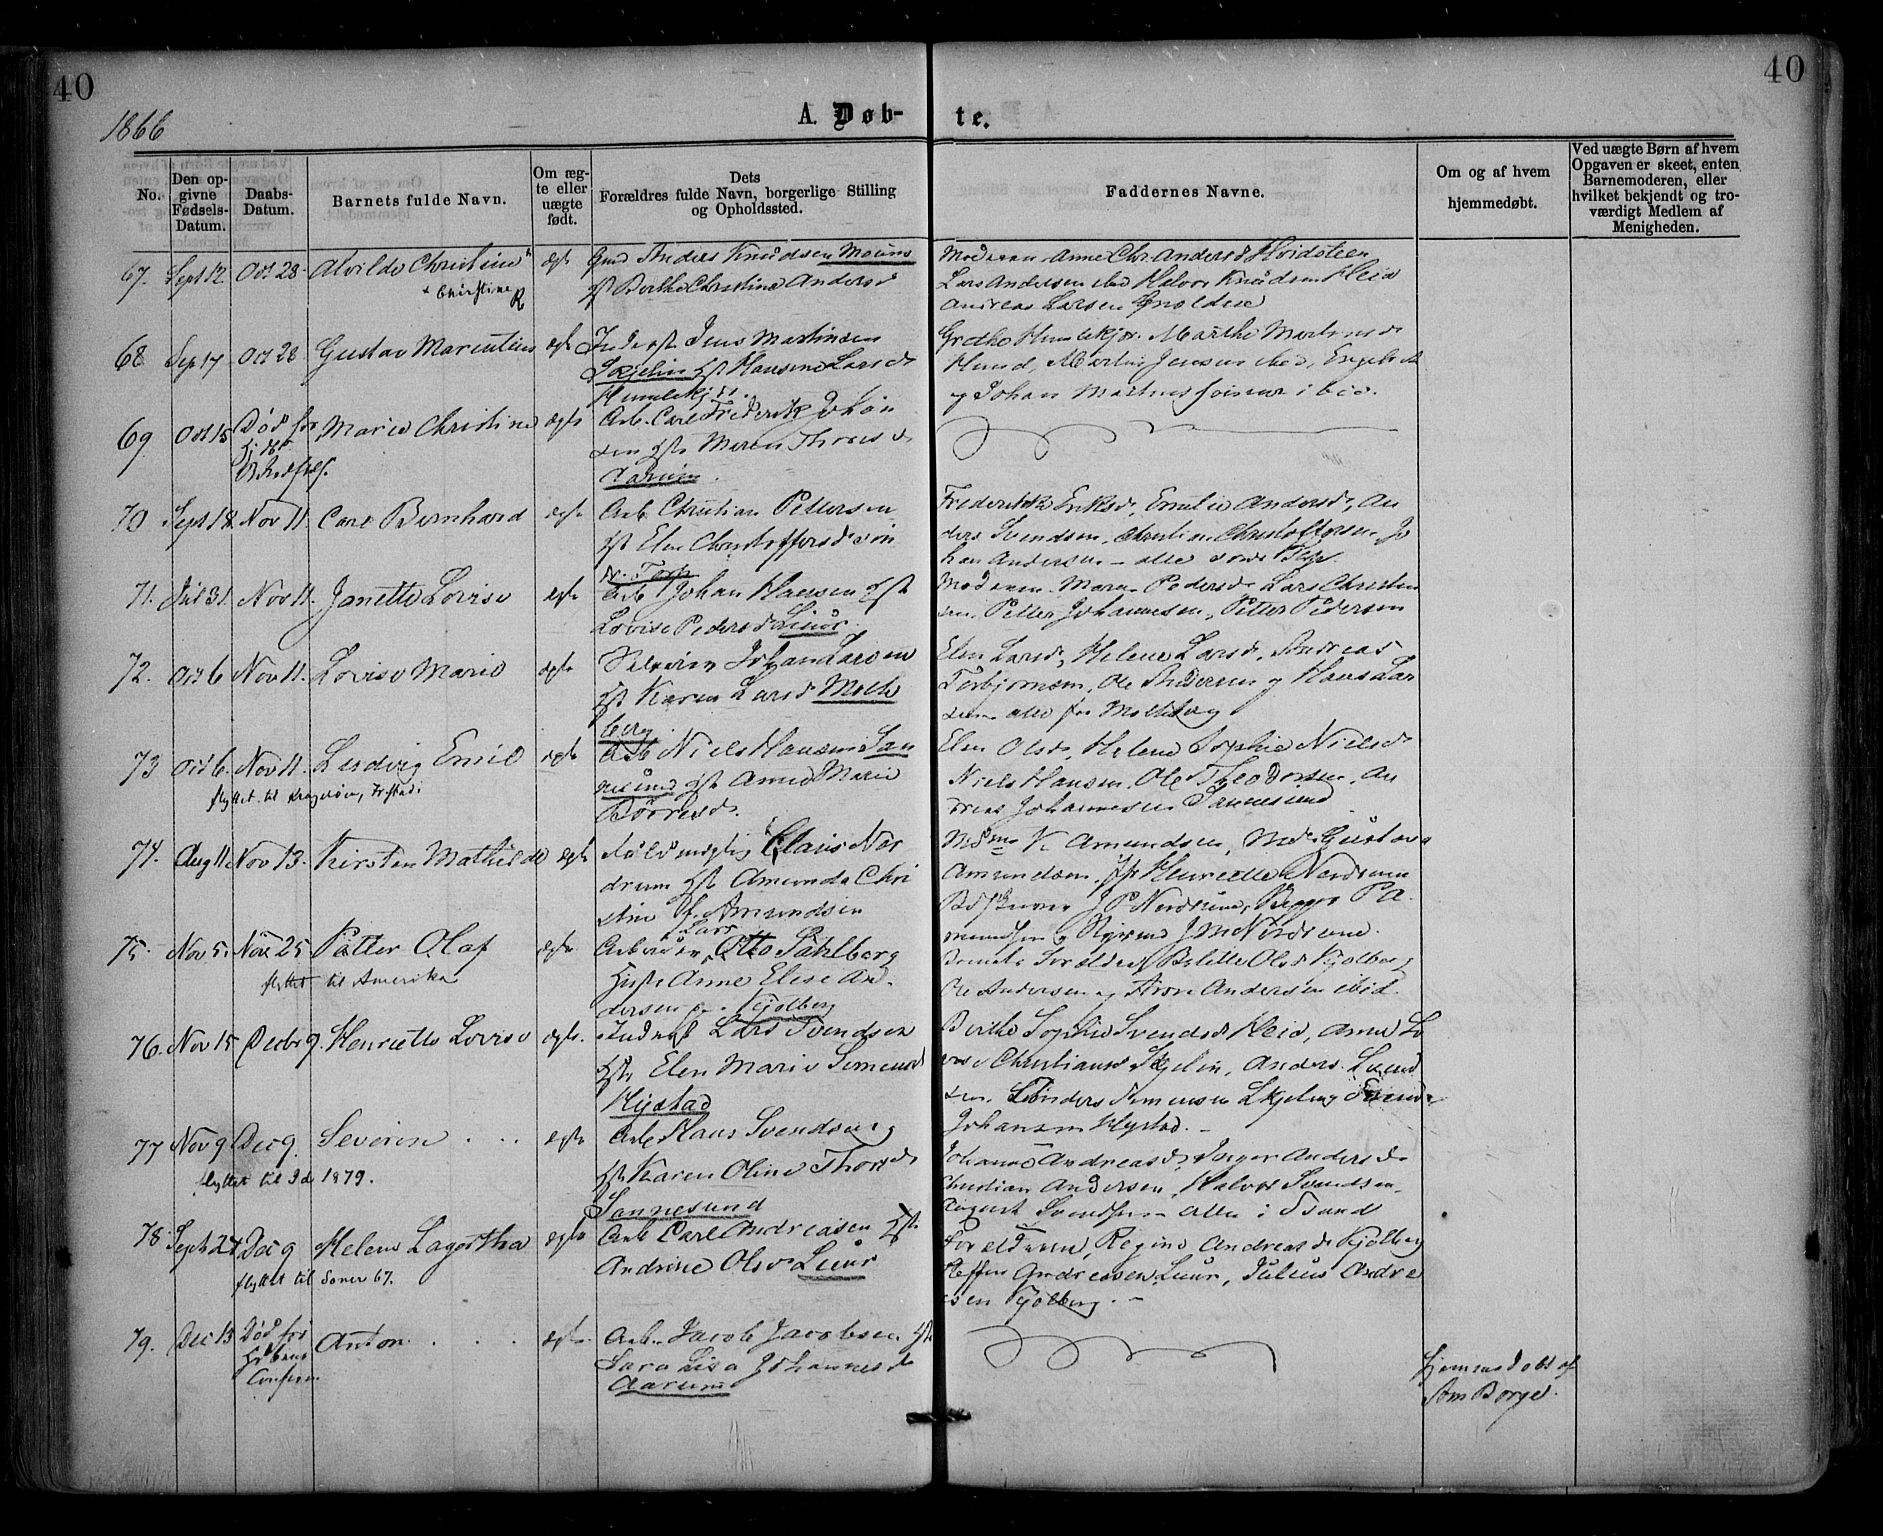 40
40
1866
A. Døb- te.
No.
Den opgivne Fødsels-Datum.
Daabs-Datum.
Barnets fulde Navn.
Om ægte eller uægte født.
Dets Forældres fulde Navn, borgerlige Stilling og Opholdssted.
Faddernes Navne.
Om og af hvem hjemmedøbt.
Ved uægte Børn af hvem Opgaven er skeet, enten Barnemoderen, eller hvilket bekjendt og troværdigt Medlem af Menigheden.
67. Sept 12. Oct 28. Alvilde Christine ægte Gmd Anders Knudsen Moum
+ Christine
Hst Berthe Christine Andersd
Moderen Anne Chr. Andersd Hvidsteen
Lars Andersen ibd Halvor Knudsen Heie
Andreas Larsen
68 Sep 17 Oct 28 Gustav Marentius ægte Inderst Jens Martinsen
Skjelin Hst Hansine Larsd
Humlekjær.
Grethe Humlekjær. Marthe Martinsd
Hund, Martin Jensen ibd, Engebret
og Johan Martinsføiner i bid.
69 Oct 15 Død før Marie Christine ægte Arb. Carl Frederik Johan
sen Hst Maren Thoresd
Aarum.
70 Sept 18. Nov 11. Carl Bernhard ægte Arb Christian Pettersen
Hst Elen Christoffersd
Frederikke Eriksd, Emilie Andersd, An
ders Svendsen, Christian Christoffersen, Jo
han Andersen - alle
71. Jul 31. Nov 11. Janette Lovise ægte Arb Johan Hansen Hst
Lovise Pedersd Luur.
Moderen. Maren Pedersd Lars Christen
sen. Petter Johannesen, Petter Pedersen
72. Oct 6 Nov 11. Lovise Marie ægte Selveier Johan Larsen
Hst Karen Larsd Molte
berg
Elen Larsd, Helene Larsd, Andreas
Torbjørnsen, Ole Pedersen og Hans Lar
sen alle fra Molteberg
73 Oct 6. Nov 11. Ludvig Emil ægte Arb Niels Hansen San
nesund Hst Anne Marie
Børresd.
flyttet til Kragerøen, Frstad:
Elen Olsd, Helene Sophie Nielsd
Niels Hansen, Ole Theodorsen, An
dreas Johannesen Sannesund
74. Aug 11. Nov 13. Kirsten Mathilde ægte Fuldmægtig Claus Ner
drum Hst Amunda Chri
stine f. Amundsen
Mdme K. Amundsen, Mdm Gustava
Amundsen, Jfr Henriette Nerdrum
J P Nerdrum, Brygger P A.
mundsen og J M Nerdrum.
75. Nov 5. Nov 25 Petter Olaf ægte Arbeider Lars Otto Dahlberg
Hust Anne Elise An
dersen fra Kjølberg
flyttet til Amerika
Barnets Forældre, Belitte Olsd Kjølberg
Ole Andersen og Thore Andersen ibid.
76. Nov 15 Decbr 9. Henriette Lovise ægte. Inderst Lars Svendsen
Hst Elen Marie Simensd
Hystad
Berthe Sophie Svendsd Heie, Anne Lo
vise Christiansd Skjelin, Anders Svend
sen. Anders Simensen Skjelin og Svend
Johansen Hystad. -
77 Nov 9 Dec 9. Severin . . . ægte Arb Hans Svendsen og
Hst Karen Oline Thorsd
Sannesund
flyttet til Id 1879.
Johanne Andreasd, Inger Andersd
Christian Andersen, Halvor Svendsen,
August Svendsen - alle i Tsund
78. Sept 24 Dec 9 Helene Lagertha ægte Arb Carl Andreasen Hst
Andrine Olsd Luur
flyttet til Soner 67.
Forældrene, Regine Andreasd Kjølberg
Steffen Andreasen Luur, Julius Andre
sen Kjølberg. -
79. Dec 13 Død før Anton . . . ægte. Arb. Jacob Jacobsen Hst
Sara Lisa Johannesd
Aarum
hjemmedøbt af
Am Borger.